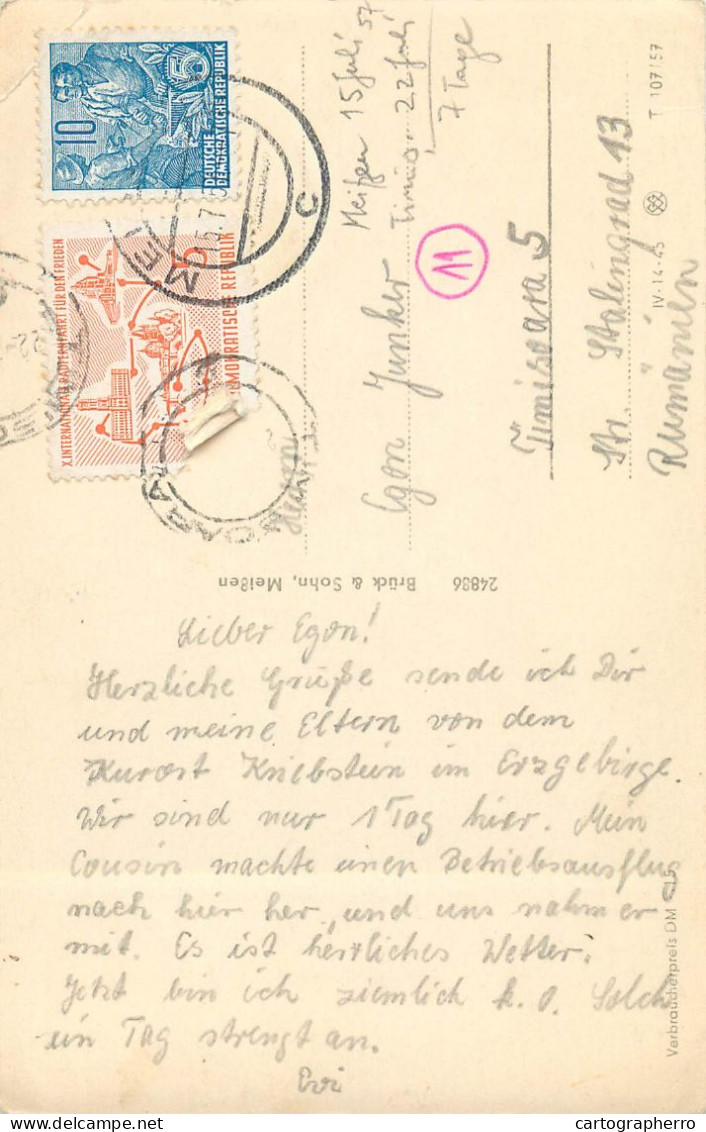 10
5
DEUTSCHE
DEMOKRATISCHE REPUBLIK
X. INTERNATIONALE RADFERNFAHRT FÜR DEN FRIEDEN
DEMOKRATISCHE REPUBLIK
15.7.5
C
22
Meißen 15 Juli 57
Timiș. 22 Juli
7 Tage
11
Egon Junker
Timișoara 5
Str. Stalingrad 13
Rumänien
T 107/57
IV-14-45
24886 Brück & Sohn, Meißen
Lieber Egon!
Herzliche Grüße sende ich Dir
und meine Eltern von dem
Kurort Kriebstein im Erzgebirge.
Wir sind nur 1 Tag hier. Mein
Cousin machte einen Betriebsausflug
nach hier her, und uns nahm er
mit. Es ist herrliches Wetter.
Jetzt bin ich ziemlich k. o. Solch
ein Tag strengt an.
Evi
Verbraucherpreis DM
cartographerro
delcampe.net